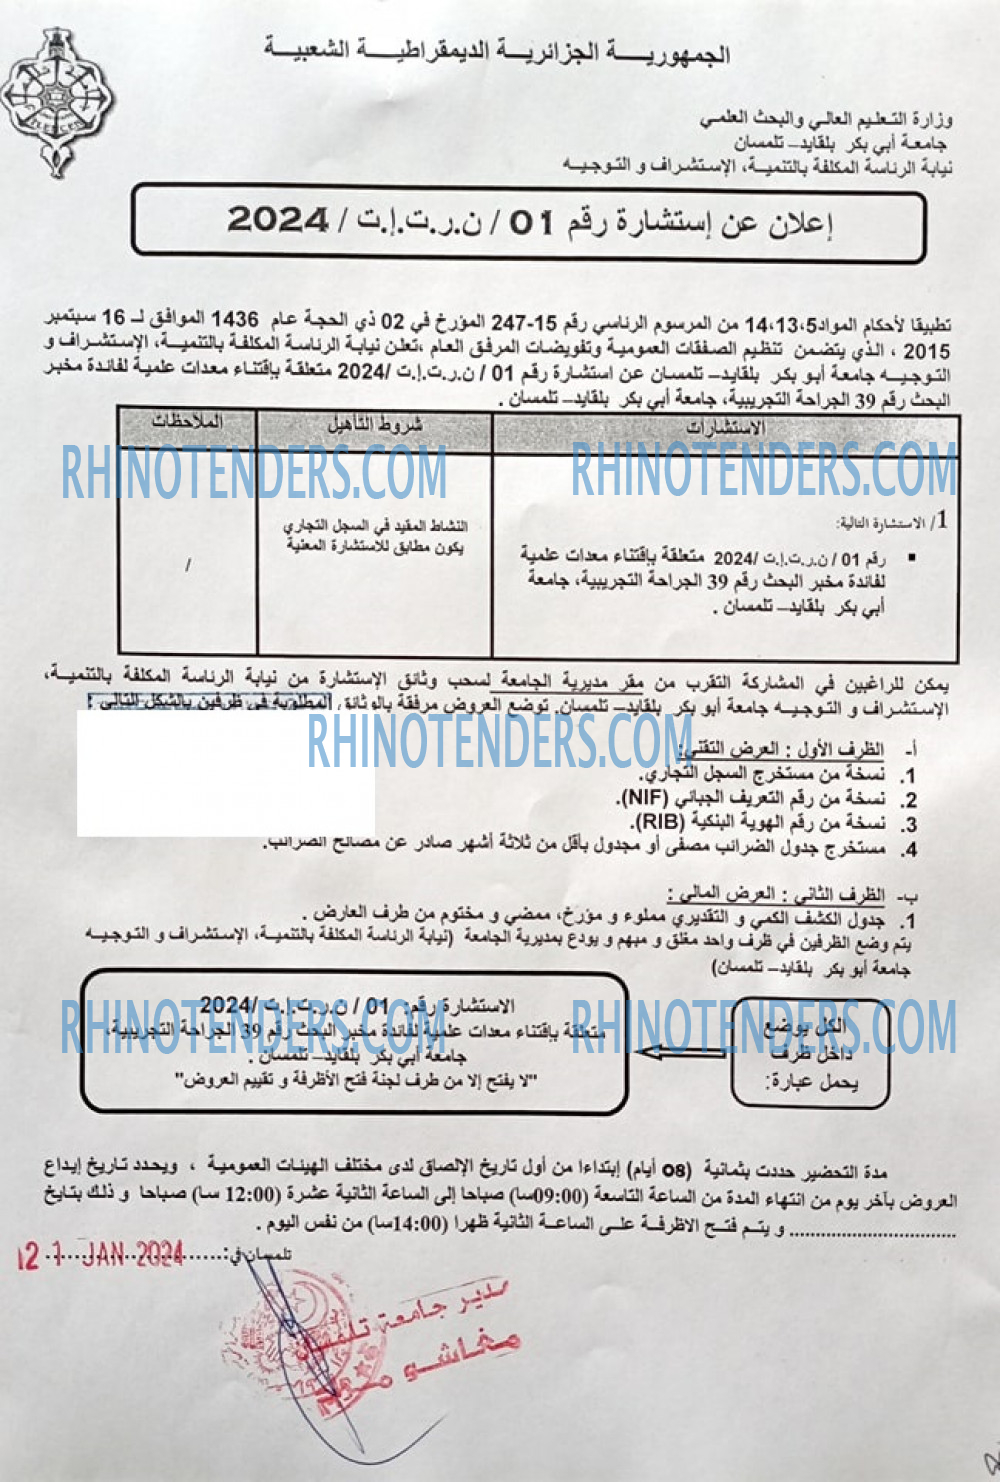 الجمهوريـــة الجزائرية الديمقراطيــة الشعبيــة
وزارة التعليم العالي والبحث العلمي
جامعة أبي بكر بلقايد– تلمسان
نيابة الرئاسة المكلفة بالتنمية، الإستشراف و التوجيه
إعلان عن إستشارة رقم 01 / ن.ر.ت.إ.ت / 2024
تطبيقا لأحكام المواد5،13،14 من المرسوم الرئاسي رقم 15-247 المؤرخ في 02 ذي الحجة عام 1436 الموافق لـ 16 سبتمبر
2015 ، الذي يتضمن تنظيم الصفقات العمومية وتفويضات المرفق العام ،تعلن نيابة الرئاسة المكلفة بالتنمية، الإستشراف و
التوجيه جامعة أبو بكر بلقايد– تلمسان عن استشارة رقم 01 / ن.ر.ت.إ.ت /2024 متعلقة بإقتناء معدات علمية لفائدة مخبر
البحث رقم 39 الجراحة التجريبية، جامعة أبي بكر بلقايد– تلمسان .
الاستشارات
شروط التأهيل
الملاحظات
RHINOTENDERS.COM RHINOTENDERS.COM
1/ الاستشارة التالية:
▪ رقم 01 / ن.ر.ت.إ.ت /2024 متعلقة بإقتناء معدات علمية
لفائدة مخبر البحث رقم 39 الجراحة التجريبية، جامعة
أبي بكر بلقايد– تلمسان .
النشاط المقيد في السجل التجاري
يكون مطابق للاستشارة المعنية
/
يمكن للراغبين في المشاركة التقرب من مقر مديرية الجامعة لسحب وثائق الإستشارة من نيابة الرئاسة المكلفة بالتنمية،
الإستشراف و التوجيه جامعة أبو بكر بلقايد– تلمسان. توضع العروض مرفقة بالوثائق المطلوبة في ظرفين بالشكل التالي :
RHINOTENDERS.COM
أ- الظرف الأول : العرض التقني:
1. نسخة من مستخرج السجل التجاري.
2. نسخة من رقم التعريف الجبائي (NIF).
3. نسخة من رقم الهوية البنكية (RIB).
4. مستخرج جدول الضرائب مصفى أو مجدول بأقل من ثلاثة أشهر صادر عن مصالح الضرائب.
ب- الظرف الثاني : العرض المالي :
1. جدول الكشف الكمي و التقديري مملوء و مؤرخ، ممضي و مختوم من طرف العارض .
يتم وضع الظرفين في ظرف واحد مغلق و مبهم و يودع بمديرية الجامعة (نيابة الرئاسة المكلفة بالتنمية، الإستشراف و التوجيه
جامعة أبو بكر بلقايد– تلمسان)
الكل يوضع
داخل ظرف
يحمل عبارة:
الاستشارة رقم: 01 / ن.ر.ت.إ.ت /2024
متعلقة بإقتناء معدات علمية لفائدة مخبر البحث رقم 39 الجراحة التجريبية،
جامعة أبي بكر بلقايد– تلمسان .
"لا يفتح إلا من طرف لجنة فتح الأظرفة و تقييم العروض"
RHINOTENDERS.COM RHINOTENDERS.COM
مدة التحضير حددت بثمانية (08 أيام) إبتداءا من أول تاريخ الإلصاق لدى مختلف الهيئات العمومية ، ويحدد تاريخ إيداع
العروض بآخر يوم من انتهاء المدة من الساعة التاسعة (09:00سا) صباحا إلى الساعة الثانية عشرة (12:00 سا) صباحا و ذلك بتايخ
................................ و يتم فتح الاظرفة على الساعة الثانية ظهرا (14:00سا) من نفس اليوم .
تلمسان في:........................
JAN 2024
مدير جامعة تلمسان